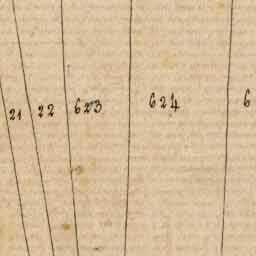 21 22 623 624 6